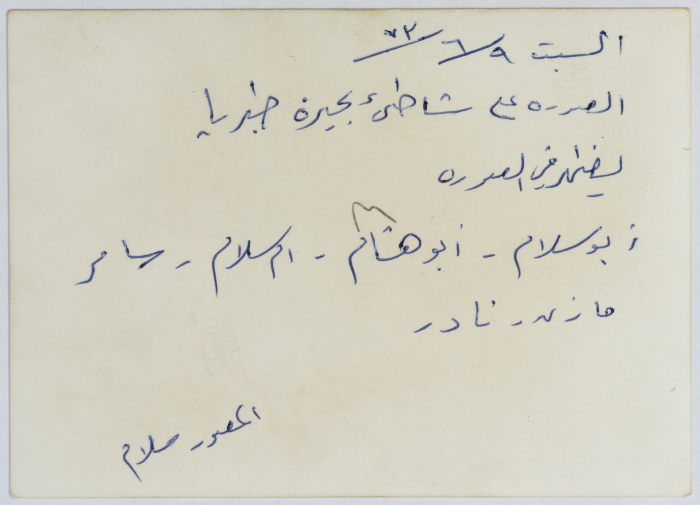 السبت ٩/٦/٧٣
الصوره على شاطىء بحيرة طبريا
يظهر في الصوره
أبو سلام - أبو هشام - ام سلام - سامر
مازن - نادر
المصور سلام